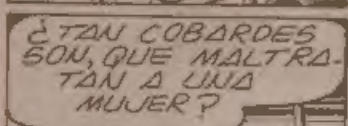 ¿TAN COBARDES
SON, QUE MALTRA-
TAN A UNA
MUJER?